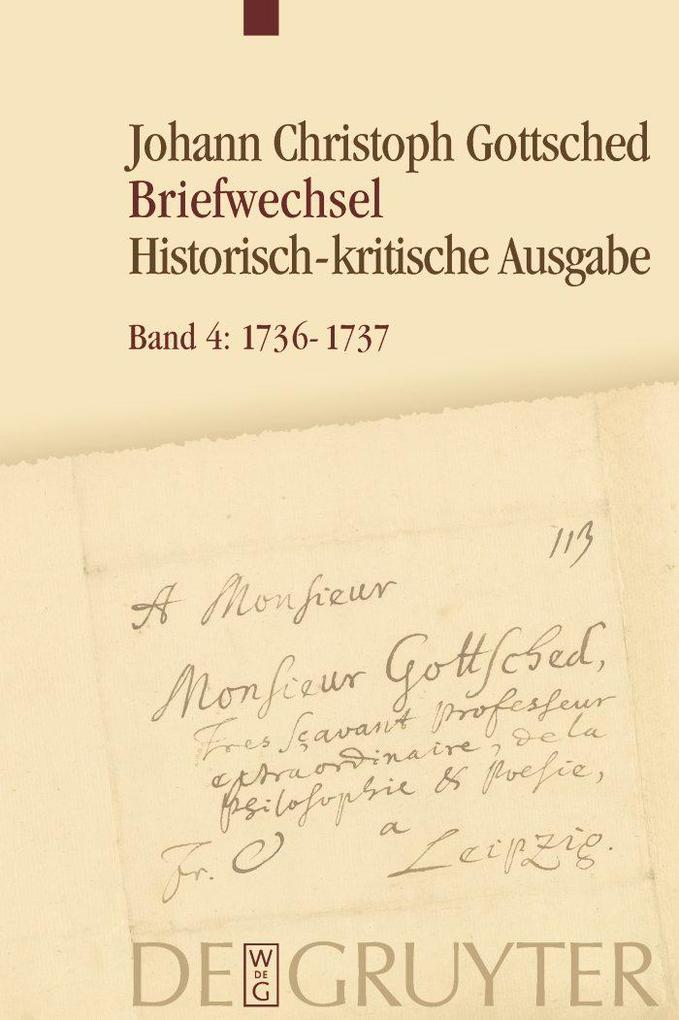 Johann Christoph Gottsched
Briefwechsel
Historisch-kritische Ausgabe
Band 4: 1736-1737
113
A Monsieur
Monsieur Gottsched,
Tres sçavant Professeur
extraordinaire, de la
Philosophie & Poesie,
a
Leipzig.
Fr.
DE GRUYTER
W
DE
G